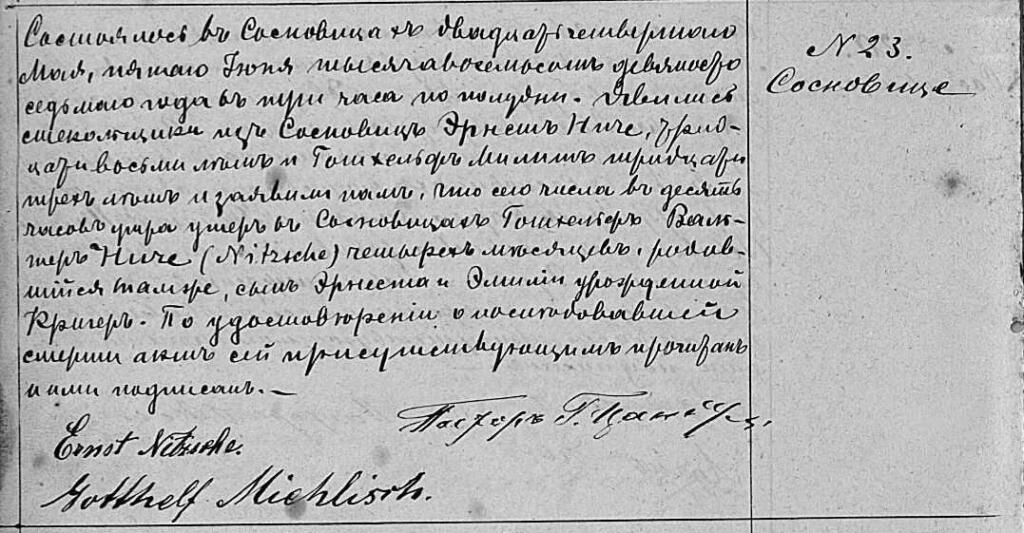 Состоялось въ Сосновицахъ двадцать четвертаго
Мая, пятаго Іюня тысяча восемьсотъ девяносто
седьмого года въ три часа по полудни. Явились
стекольщики изъ Сосновицъ Эрнестъ Ниче, трид-
цати восьми лѣтъ и Готхельфъ Милишъ тридцати
трехъ лѣтъ и заявили намъ, что сего числа въ десять
часовъ утра умеръ въ Сосновицахъ Готхельфъ Валь-
теръ Ниче (Nitzsche) четырехъ мѣсяцевъ, родив-
шійся тамже, сынъ Эрнеста и Эмиліи урожденной
Кригеръ. По удостовѣреніи о послѣдовавшей
смерти актъ сей присутствующимъ прочитанъ
и ими подписанъ. —
Пасторъ Г.
Ernst Nitzsche.
Gotthelf Miehlisch.
N 23.
Сосновице